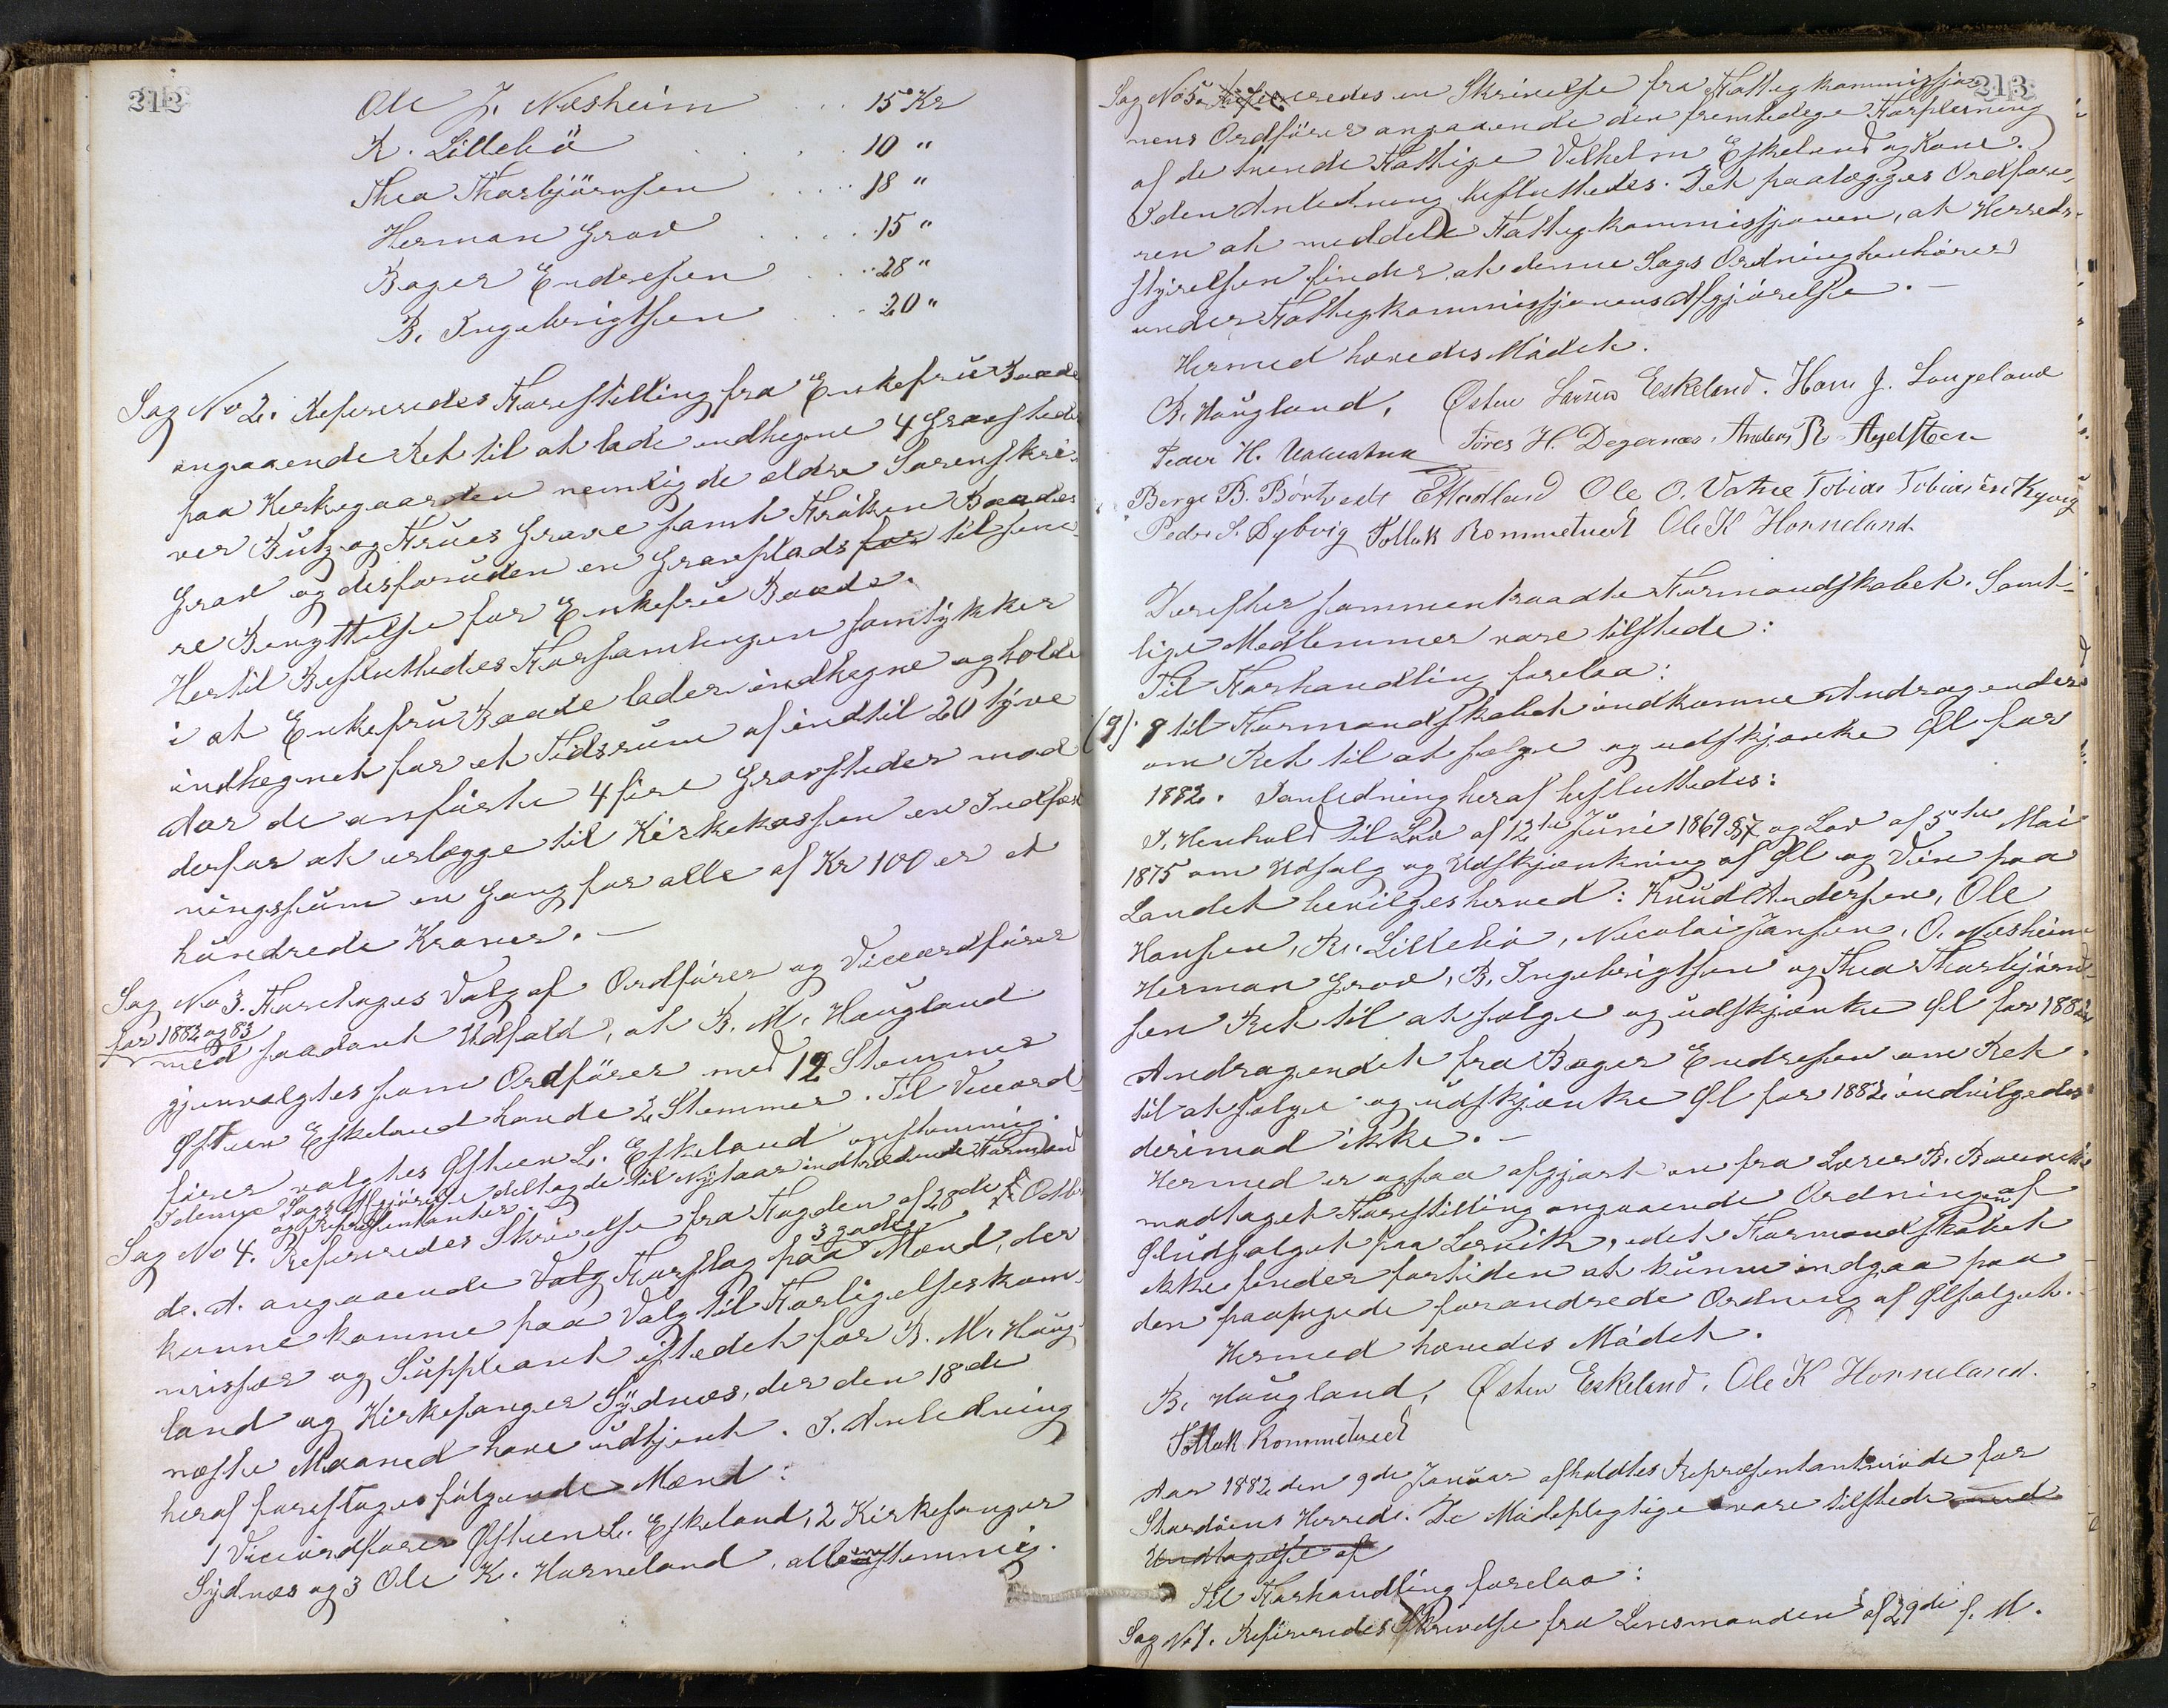 212
Ole J. Næsheim . . 15 Kr
K. Lillebö . . . 10 "
Thea Thorbjörnsen . . . . 18 "
Herman Grov . . . . 15 "
Bager Endresen . . . 28 "
B. Ingebrigtsen . . 20 "
Sag No 2. Refereredes Forestilling fra Enkefru Baade
angaaende Ret til at lade indhegne 4 Gravsteder
paa Kirkegaarden nemlig de ældre Sorenskri-
ver Butz og Frues Grave samt Fröken Baades
Grav og desforuden en Gravplads for til sene-
re Benyttelse for Enkefru Baade.
Hertil Besluttedes Forsamlingen samtykker
i at Enkefru Baade lader indhegne og holde
indhegnet for et Tidsrum af indtil 20 tyve
Aar de anförte 4 fire Gravsteder mod
derfor at erlægge til Kirkekassen en Indfæst
ningssum en Gang for alle af Kr 100 er et
hundrede Kroner. –
Sag No 3. Foretoges Valg af Ordförer og Viceordförer
for 1882 og 83
med saadant Udfald, at B. M. Haugland
gjenvalgtes som Ordförer med 12 Stemmer
Østen Eskeland havde 2 Stemmer. Til Viceord
förer valgtes Østen L. Eskeland enstemmig.
I denne Sags Afgjörelse deltog de til Nytaar indtrædende Formænd
og Repræsentanter.
Sag No 4. Refereredes Skrivelse fra Fogden af 28de f. Octbr
d. A. angaaende Valg Forslag paa 3 gode Mænd, der
kunne komme paa Valg til Forligelseskom-
missær og Suppleant istedet for B. M. Haug-
land og Kirkesanger Sydnæs, der den 18de
næste Maaned have udtjent. I Anledning
heraf foresloges fölgende Mænd:
1 Viceordförer Østen L. Eskeland, 2 Kirkesanger
Sydnæs og 3 Ole K. Horneland, alle enstemmig.
213
Sag No 5. Refereredes en Skrivelse fra Fattigkommissjo-
nens Ordförer angaaende den fremtidige Forplejning
af de tvende Fattige Vilhelm Eskeland og Kone.
I den Anledning besluttedes: Det paalægges Ordföre-
ren at meddele Fattigkommissjonen, at Herreds-
styrelsen finder, at denne Sags Ordning henhörer
under Fattigkommissjonens Afgjörelse. –
Hermed hævedes Mödet.
B. Haugland, Østen Larsen Eskeland. Hans J. Langeland
Peder H. Töres H. Degernæs, Anders R.
Berge B. Börtveit Ole O. Vatne Tobias Tobiasen Kyvig
Peder S. Dybvig Tollak Rommetvedt Ole K Horneland.
Derefter sammentraadte Formandskabet. Samt-
lige Medlemmer vare tilstede:
Til Forhandling forelaa:
(9) 9 til Formandskabet indkomne Andragender
om Ret til at sælge og udskjænke Øl for
1882. I anledning heraf besluttedes:
I Henhold til Lov af 12te Juni 1869 § 7 og Lov af 5te Mai
1875 om Udsalg og Udskjænkning af Øl og Vin paa
Landet bevilges herved: Knud Andersen, Ole
Hansen, K. Lillebö, Nicolai Jansen, O. Næsheim
Herman Grov, B. Ingebrigtsen og Thea Thorbjörn-
sen Ret til at sælge og udskjænke Øl for 1882
Andragendet fra Bager Endresen om Ret
til at sælge og udskjænke Øl for 1882 indvilgedes
derimod ikke. –
Hermed er ogsaa afgjort en fra Lærer B.
modtaget Forestilling angaaende Ordningen af
Øludsalget paa Lervik, idet Formandskabet
ikke finder fortiden at kunne indgaa paa
den paapegede forandrede Ordning af Ølsalget. –
Hermed hævedes Mödet.
B. Haugland, Østen Eskeland, Ole K Horneland.
Tollak Rommetvedt
Aar 1882 den 9de Januar afholdtes Repræsentantmöde for
Stordöens Herred. De Mödepligtige vare tilstede med
Undtagelse af
Til Forhandling forelaa:
Sag No 1. Refereredes Skrivelse fra Lensmanden af 29de f. M.